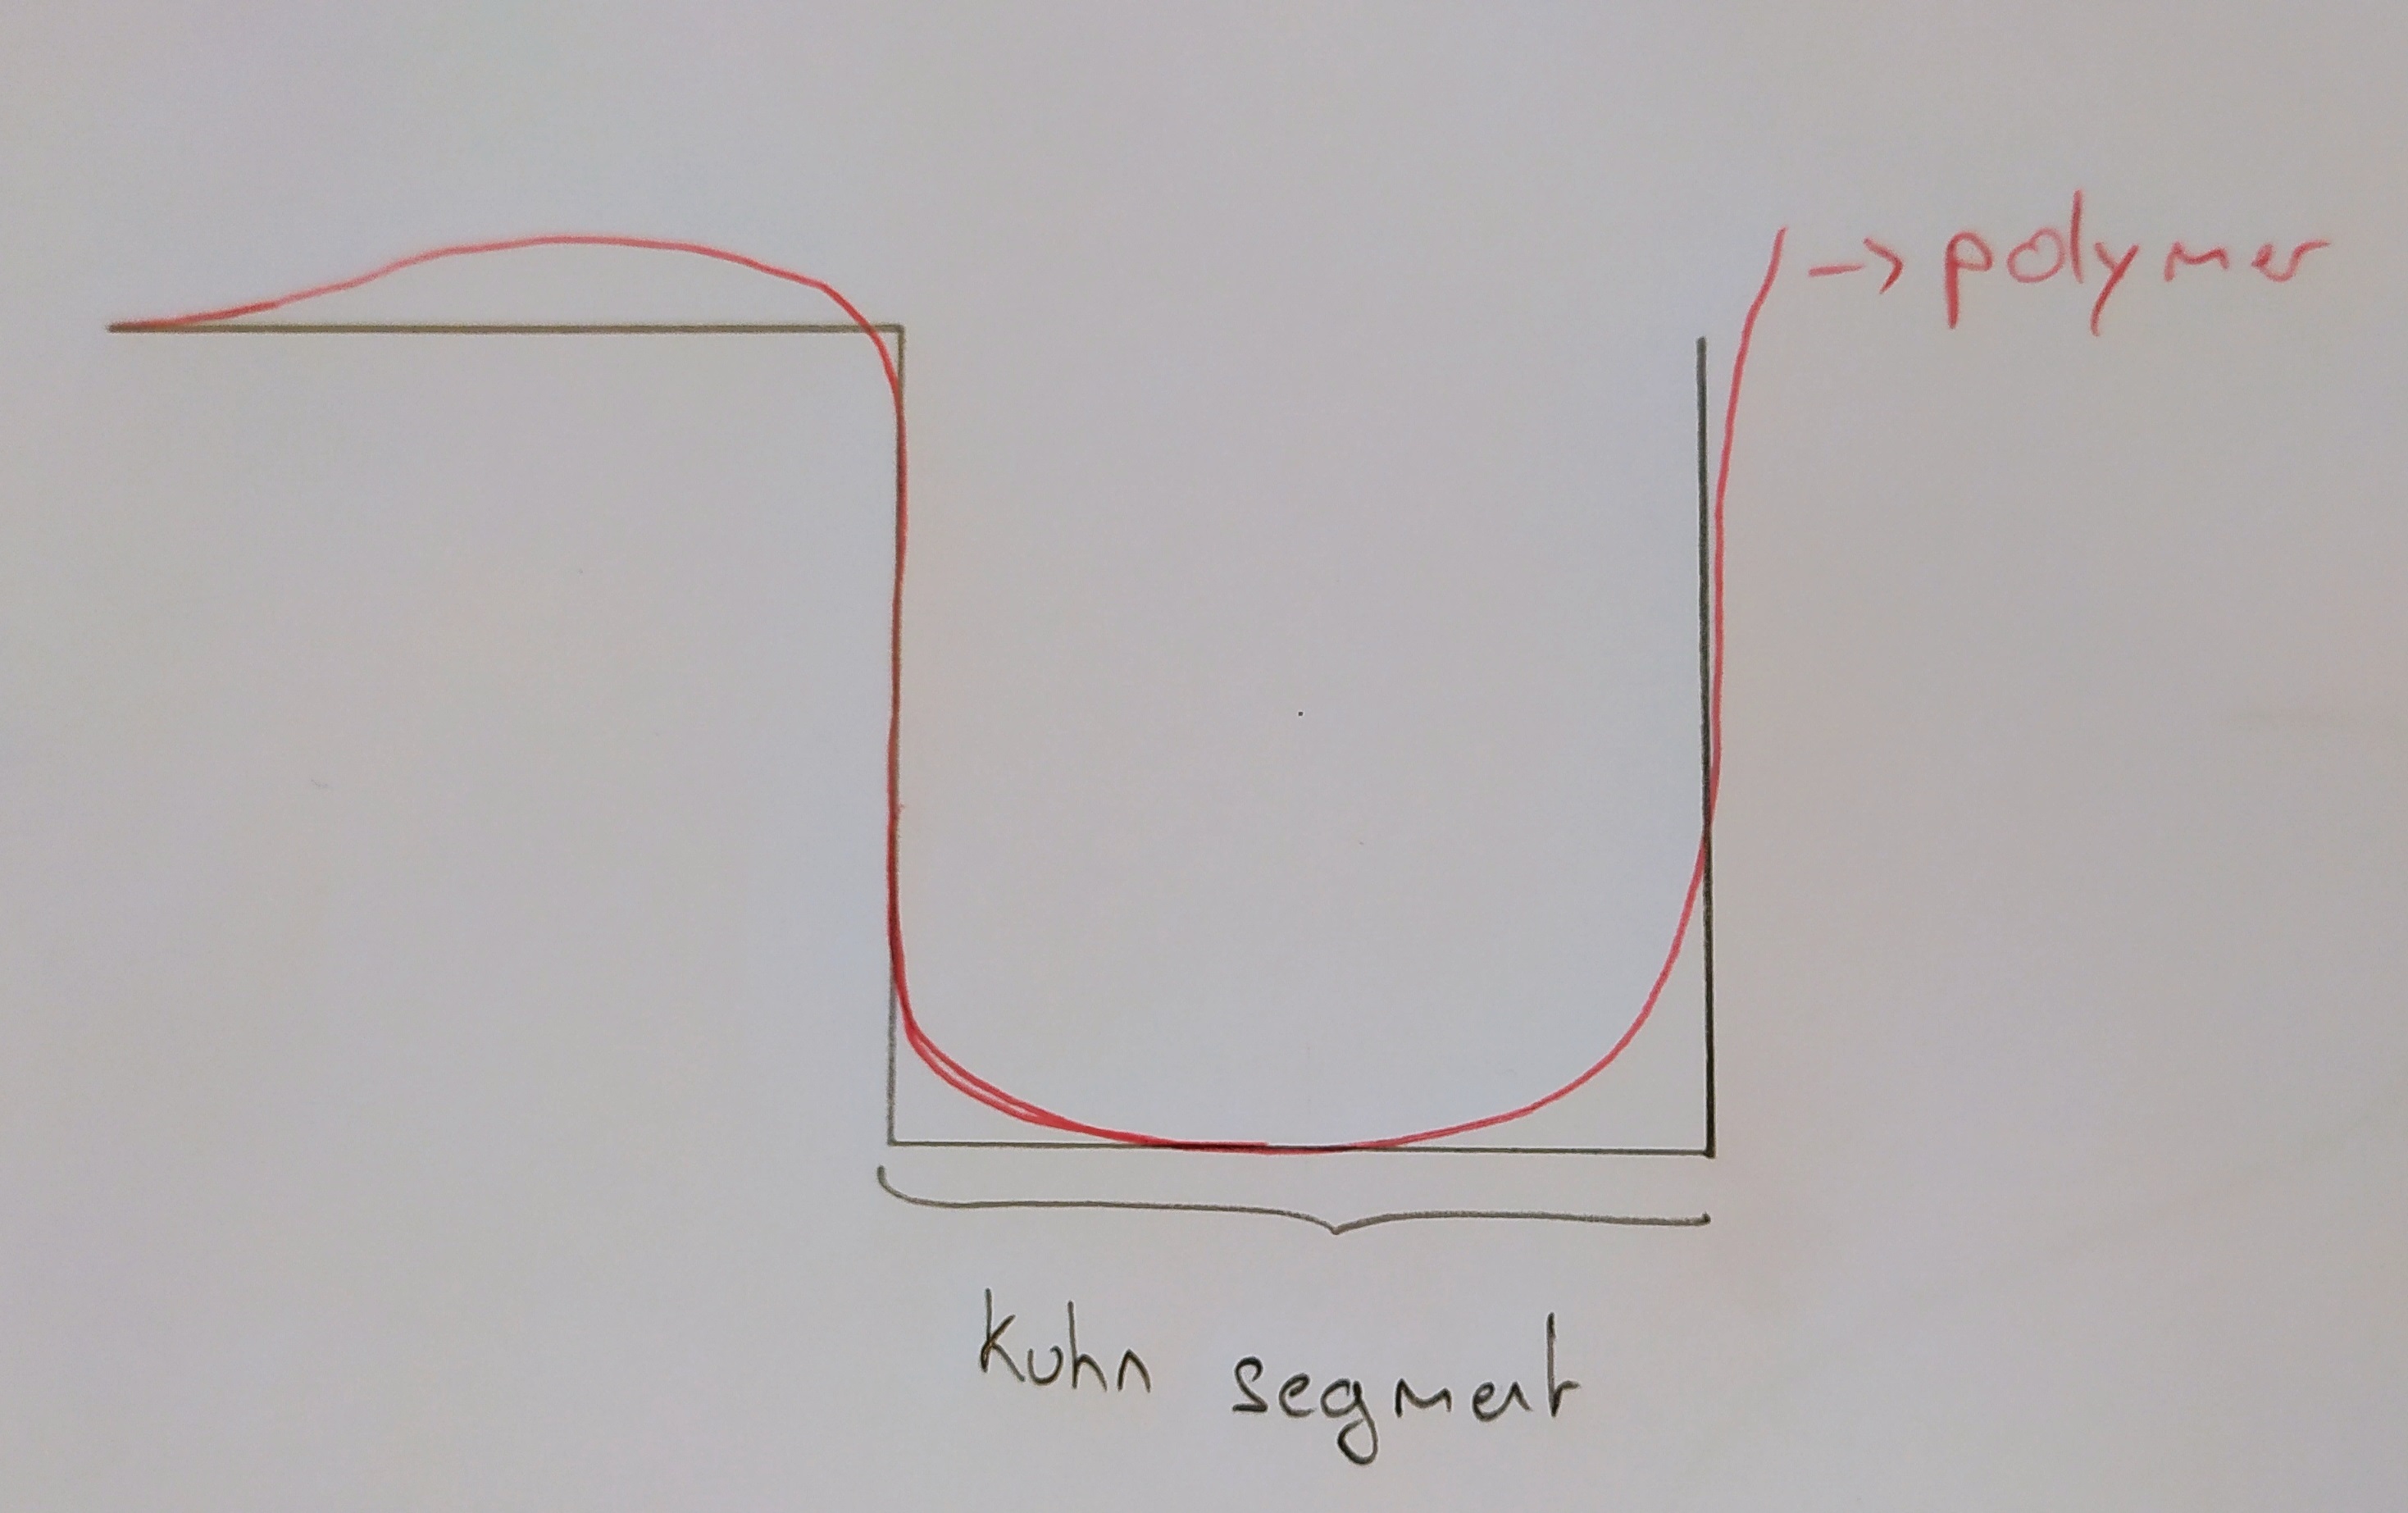 -> polymer
Kuhn segment